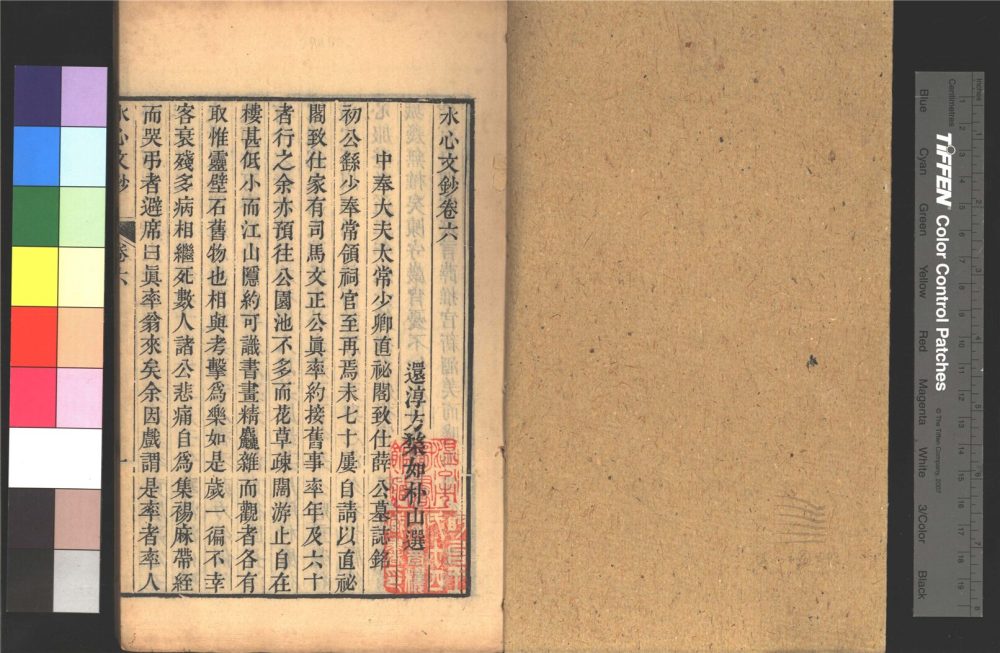 水心文鈔卷六
還淳方楘如朴山選
中奉大夫太常少卿直祕閣致仕薛公墓誌銘
初公繇少奉常領祠官至再焉未七十屢自請以直祕
閣致仕家有司馬文正公眞率約接舊事率年及六十
者行之余亦預往公園池不多而花草疎闊游止自在
樓甚低小而江山隱約可識書畫精麤雜而觀者各有
取惟靈壁石舊物也相與考擊爲樂如是歲一徧不幸
客衰殘多病相繼死數人諸公悲痛自爲集裼麻帶絰
而哭弔者避席曰眞率翁來矣余因戲謂是率者率人
水心文鈔
卷六
一
TIFFEN Color Control Patches
© The Tiffen Company, 2007
Blue Cyan Green Yellow Red Magenta White 3/Color Black
Inches 1 2 3 4 5 6 7 8
Centimetres 1 2 3 4 5 6 7 8 9 10 11 12 13 14 15 16 17 18 19